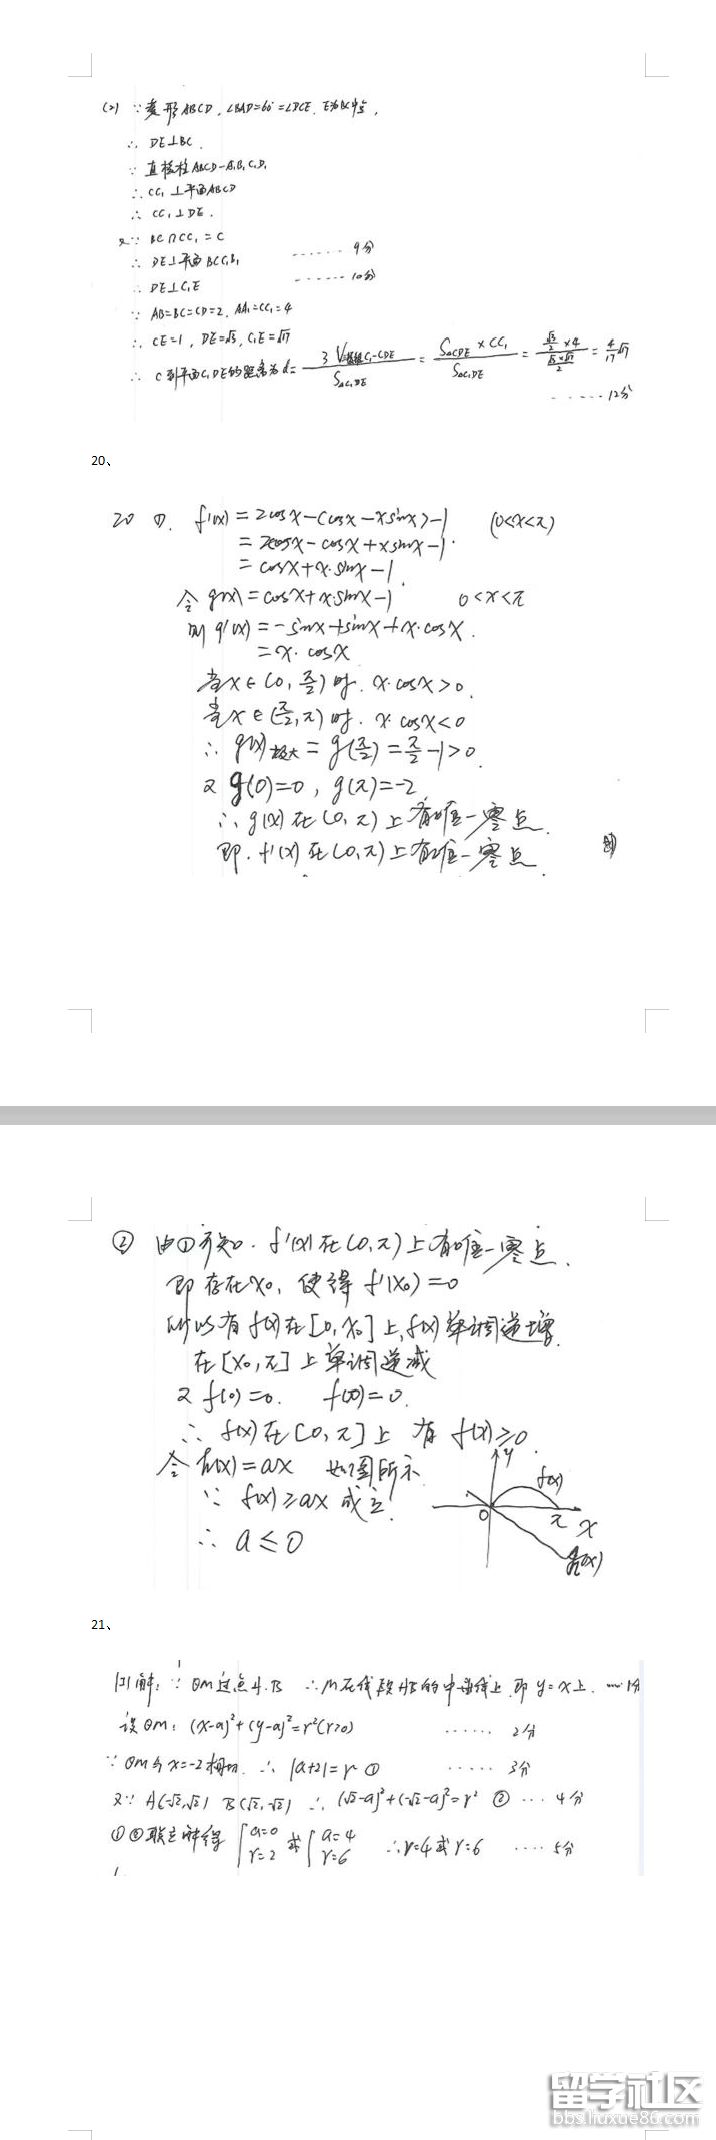 (2) ∵ 菱形ABCD, ∠BAD=60°=∠DCE, E为BC中点,
∴ DE⊥BC.
∵ 直棱柱ABCD-A₁B₁C₁D₁
∴ CC₁⊥平面ABCD
∴ CC₁⊥DE.
又∵ BC∩CC₁=C
∴ DE⊥平面BCC₁B₁ ……9分
∴ DE⊥C₁E ……10分
∵ AB=BC=CD=2, AA₁=CC₁=4
∴ CE=1, DE=√3, C₁E=√17
∴ C到平面C₁DE的距离为d= 3V棱锥C₁-CDE / S△C₁DE = S△CDE×CC₁ / S△C₁DE = (√3/2 ×4) / (√3×√17/2) = 4/17 √17
……12分
20、
20 ①. f'(x)=2cosx-(cosx-xsinx)-1 (0<x<π)
=2cosx-cosx+xsinx-1.
=cosx+x·sinx-1.
令g(x)=cosx+x·sinx-1 0<x<π
则g'(x)=-sinx+sinx+x·cosx.
=x·cosx
当x∈(0, π/2)时. x·cosx>0.
当x∈(π/2, π)时. x·cosx<0
∴ g(x)极大=g(π/2)=π/2-1>0.
又g(0)=0, g(π)=-2
∴ g(x)在(0,π)上有唯一零点.
即. f'(x)在(0,π)上有唯一零点.
② 由①可知. f'(x)在(0,π)上有唯一零点.
即存在x₀, 使得f'(x₀)=0
所以有f(x)在[0,x₀]上,f(x)单调递增.
在[x₀,π]上单调递减
又f(0)=0. f(π)=0.
∴ f(x)在[0,π]上有f(x)≥0.
令h(x)=ax 如图所示.
∵ f(x)≥ax成立
∴ a≤0
y
f(x)
0 π x
h(x)
21、
解: ∵ ⊙M过点A.B ∴M在线段AB的中垂线上.即y=x上. ……1分
设⊙M: (x-a)²+(y-a)²=r²(r>0) ……2分
∵ ⊙M与x=-2相切. ∴ |a+2|=r ① ……3分
又∵ A(-√2,√2) B(√2,-√2) ∴ (√2-a)²+(-√2-a)²=r² ② …4分
①②联立解得 {a=0 r=2 或 {a=4 r=6 ∴r=4或r=6 ……5分
留学社区
bbs.liuxue86.com